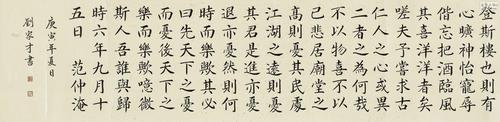 登斯樓也則有
心曠神怡寵辱
偕忘把酒臨風
其喜洋洋者矣
嗟夫予嘗求古
仁人之心或異
二者之為何哉
不以物喜不以
己悲居廟堂之
高則憂其民處
江湖之遠則憂
其君是進亦憂
退亦憂然則何
時而樂歟其必
曰先天下之憂
而憂後天下之
樂而樂歟噫微
斯人吾誰與歸
時六年九月十
五日 范仲淹
庚寅年夏日
劉家才書